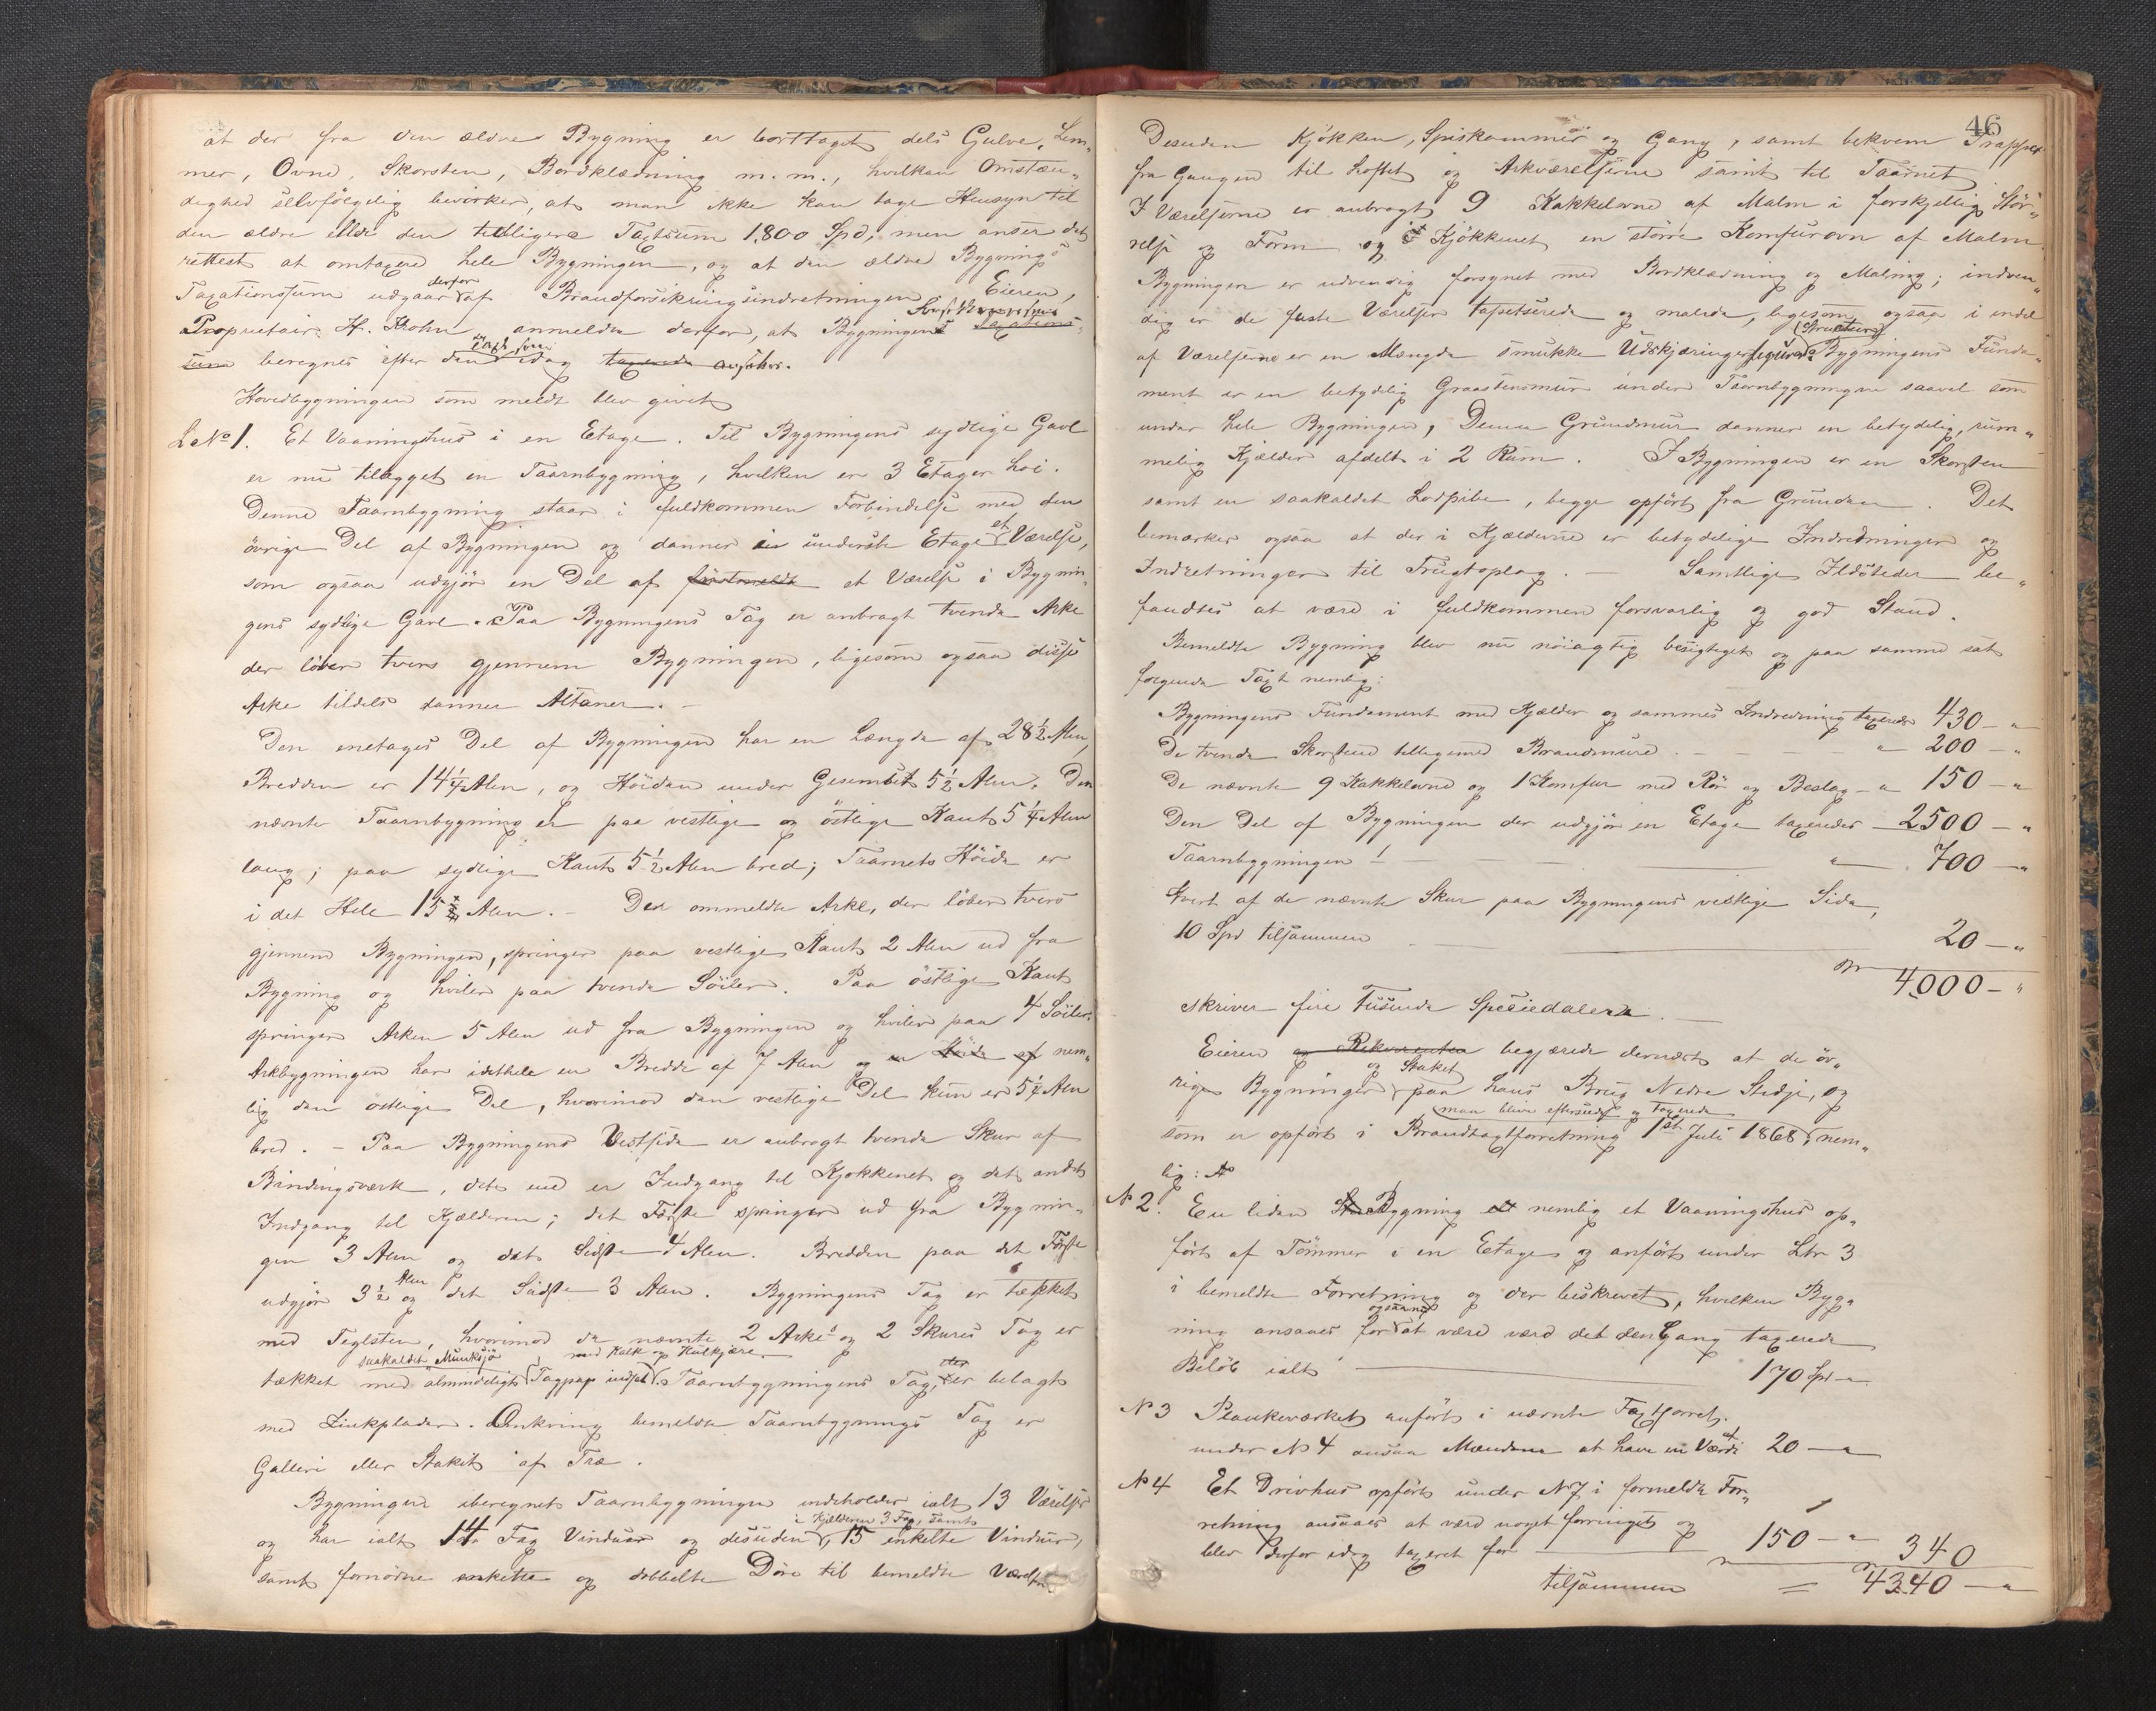 at der fra den ældre Bygning er borttaget dels Gulve, Lem„
mer, Ovne, Skorsten, Bordklædning m. m., hvilken Omstæn„
dighed selvfölgelig bevirker, at man ikke kan tage Hensyn til
den ældre eller den tidligere Taxtsum 1800 Spd, men anser det
rettest at omtaxere hele Bygningen, og at den ældre Bygnings
Taxationssum udgaar derfor af Brandforsikringsindretningen. Eieren,
Proprietair H. Krohn anmelder derfor, at Bygningens Taxations„
sum beregnes efter den Taxt, som idag taxerede anføres.
Hovedbygningen som meldt blev givet
L No 1. Et Vaaningshus i en Etage. Til Bygningens sydlige Gavl
er nu tillagget en Taarnbygning, hvilken er 3 Etager höi.
Denne Taarnbygning staar i fuldkommen Forbindelse med den
övrige Del af Bygningen og danner i underste Etage et Værelse,
som ogsaa udgjör en Del af förstmeldte et Værelse i Bygnin„
gens sydlige Gavl. Paa Bygningens Tag er anbragt tvende Arke
der löber tvers gjennem Bygningen, ligesom ogsaa disse
Arke tildels danner Altaner. –
Den enetages Del af Bygningen har en Længde af 28½ Alen,
Bredden er 14¼ Alen, og Höiden under Gesembset 5½ Alen. Den
nævnte Taarnbygning er paa vestlige og östlige Kant 5¼ Alen
lang; paa sydlige Kant 5½ Alen bred; Taarnets Höide er
i det Hele 15 Alen. – Den ommeldte Arke, der löber tvers
gjennem Bygningen, springer paa vestlige Kant 2 Alen ud fra
Bygning og hviler paa tvende Söiler. Paa östlige Kant
springer Arken 5 Alen ud fra Bygningen og hviler paa 4 Söiler.
Arkbygningen har idethele en Bredde af 7 Alen og en Höide af nem„
lig den östlige Del, hvorimod den vestlige Del kun er 5¼ Alen
bred. – Paa Bygningens Vestside er anbragt tvende Skur af
Bindingsværk, det ene er Indgang til Kjökkenet og det andet
Indgang til Kjælderen; det Förste springer ud fra Bygnin„
gen 3 Alen og det Sidste 4 Alen. Bredden paa det Förste
udgjör 3½ Alen og det Sidste 3 Alen. Bygningens Tag er tækket
med Teglsten, hvorimod de nævnte 2 Arke's og 2 Skures Tag er
tækket med saakaldet Munksjö almindeligt Tagpap indsat med Kalk og Kulkjære. Taarnbygningens Tag er belagt
med Zinkplader. Omkring bemeldte Taarnbygnings Tag er
Galleri eller Stakit af Træ.
Bygningen iberegnet Taarnbygningen indeholder ialt 13 Værelser
og har ialt 14 Fag Vinduer og desuden i Kjælderen 3 Fag, samt 15 enkelte Vinduer,
samt fornödne enkelte og dobbelte Döre til bemeldte Værelser
46
Desuden Kjökken, Spiskammer og Gang, samt bekvem Trapper
fra Gangen til Loftet og Arkværelserne samt til Taarnet.
I Værelserne er anbragt 9 Kakkelovne af Malm i forskjellig Stör„
relse og Form og i Kjökkenet en större Komfurovn af Malm.
Bygningen er udvendig forsynet med Bordklædning og Maling; indven„
dig er de fleste Værelser tapetserede og malede, ligesom ogsaa i endel
af Værelserne er en Mængde smukke Udskjæringer Bygningens Funda„
ment er en betydelig Graastensmur under Taarnbygningen saavel som
under hele Bygningen, Denne Grundmur danner en betydelig, rum„
melig Kjælder afdelt i 2 Rum. I Bygningen er en Skorsten
samt en saakaldet Lodpibe, begge opfört fra Grunden. Det
bemærkes ogsaa at der i Kjælderne er betydelige Indredninger og
Indretninger til Frugtoplag. – Samtlige Ildsteder be„
fandtes at være i fuldkommen forsvarlig og god Stand.
Bemeldte Bygning blev nu nöiagtig besigtiget og paa samme sat
fölgende Taxt nemlig:
Bygningens Fundament med Kjælder og sammes Indredning taxeredes 430 – „
De tvende Skorstene tilligemed Brandmure – „ 200 – „
De nævnte 9 Kakkelovne og 1 Komfur med Rör og Beslag – „ 150 – „
Den Del af Bygningen der udgjör en Etage taxeredes – 2500 – „
Taarnbygningen – „ 700 – „
Hvert af de nævnte Skur paa Bygningens vestlige Side,
10 Spd tilsammen 20 – „
4000 – „
skriver fire Tusinde Speciedaler. –
Eieren og Rekvirenten begjærede dernæst at de öv„
rige Bygninger og Staket paa hans Brug Nedre Stedje, og
som er opfört i Brandtaxtforretning 1ste Juli 1868, maa blive efterseede og taxerede nem„
lig:
No 2. En liden Bygning nemlig et Vaaningshus op„
fört af Tömmer i en Etage og anfört under Ltr 3
i bemeldte Forretning og der beskrevet, hvilken Byg„
ning ansaaes for at være værd det den Gang taxerede
Belöb ialt 170 Spd „
No 3 Plankeværket anfört i nævnte Taxtforret.
under No 4 ansaa Mændene at have en Værdi af 20 – „
No 4 Et Drivhus opfört under No 7 i formeldte For„
retning ansaaes at være noget forringet og
blev derfor idag taxeret for 150 – „ 340
tilsammen = 4340 – „